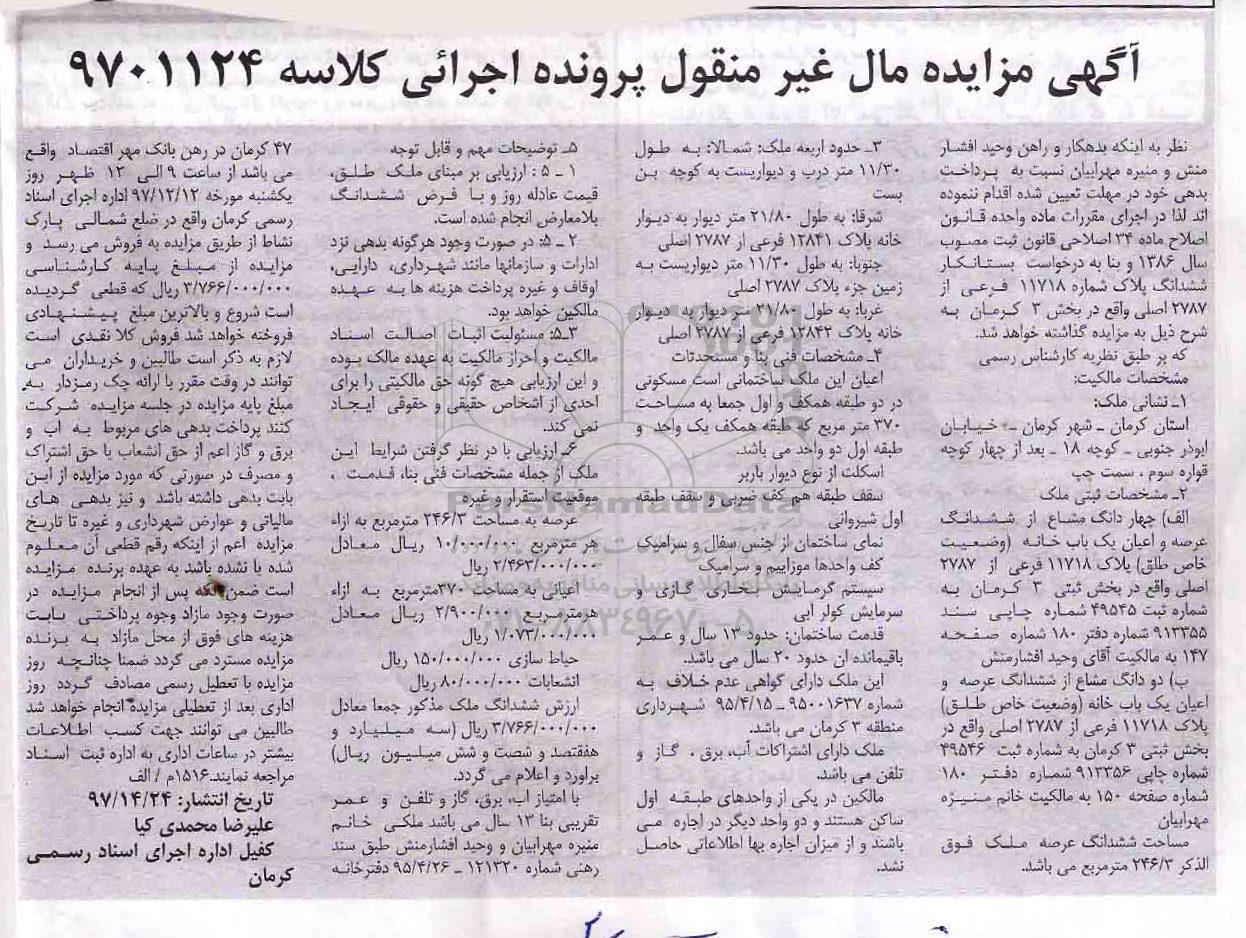 آگهی مزایده مال غیر منقول پرونده اجرائی کلاسه ۹۷۰۱۱۲۴
نظر به اینکه بدهکار و راهن وحید افشار
منش و منیره مهرابیان نسبت به پرداخت
بدهی خود در مهلت تعیین شده اقدام ننموده
اند لذا در اجرای مقررات ماده واحده قانون
اصلاح ماده ۳۴ اصلاحی قانون ثبت مصوب
سال ۱۳۸۶ و بنا به درخواست بستانکار
ششدانگ پلاک شماره ۱۱۷۱۸ فرعی از
۲۷۸۷ اصلی واقع در بخش ۳ کرمان به
شرح ذیل به مزایده گذاشته خواهد شد.
که بر طبق نظریه کارشناس رسمی
مشخصات مالکیت:
۱ـ نشانی ملک:
استان کرمان ـ شهر کرمان ـ خیابان
ابوذر جنوبی ـ کوچه ۱۸ ـ بعد از چهار کوچه
قواره سوم ، سمت چپ
۲ـ مشخصات ثبتی ملک
الف) چهار دانگ مشاع از ششدانگ
عرصه و اعیان یک باب خانه (وضعیت
خاص طلق) پلاک ۱۱۷۱۸ فرعی از ۲۷۸۷
اصلی واقع در بخش ثبتی ۳ کرمان به
شماره ثبت ۴۹۵۴۵ شماره چاپی سند
۹۱۳۳۵۵ شماره دفتر ۱۸۰ شماره صفحه
۱۴۷ به مالکیت آقای وحید افشارمنش
ب) دو دانگ مشاع از ششدانگ عرصه و
اعیان یک باب خانه (وضعیت خاص طلق)
پلاک ۱۱۷۱۸ فرعی از ۲۷۸۷ اصلی واقع در
بخش ثبتی ۳ کرمان به شماره ثبت ۴۹۵۴۶
شماره چاپی ۹۱۳۳۵۶ شماره دفتر ۱۸۰
شماره صفحه ۱۵۰ به مالکیت خانم منیژه
مهرابیان
مساحت ششدانگ عرصه ملک فوق
الذکر ۲۴۶/۳ مترمربع می باشد.
۳ـ حدود اربعه ملک: شمالا: به طول
۱۱/۳۰ متر درب و دیواریست به کوچه بن
بست
شرقا: به طول ۲۱/۸۰ متر دیوار به دیوار
خانه پلاک ۱۲۸۴۱ فرعی از ۲۷۸۷ اصلی
جنوبا: به طول ۱۱/۳۰ متر دیواریست به
زمین جزء پلاک ۲۷۸۷ اصلی
غربا: به طول ۲۱/۸۰ متر دیوار به دیوار
خانه پلاک ۱۲۸۴۲ فرعی از ۲۷۸۷ اصلی
۴ـ مشخصات فنی بنا و مستحدثات
اعیان این ملک ساختمانی است مسکونی
در دو طبقه همکف و اول جمعا به مساحت
۳۷۰ متر مربع که طبقه همکف یک واحد و
طبقه اول دو واحد می باشد.
اسکلت از نوع دیوار باربر
سقف طبقه هم کف ضربی و سقف طبقه
اول شیروانی
نمای ساختمان از جنس سفال و سرامیک
کف واحدها موزاییم و سرامیک
سیستم گرمایش بخاری گازی و
سرمایش کولر ابی
قدمت ساختمان: حدود ۱۳ سال و عمر
باقیمانده ان حدود ۲۰ سال می باشد.
این ملک دارای گواهی عدم خلاف به
شماره ۹۵۰۰۱۶۳۷ ـ ۹۵/۴/۱۵ شهرداری
منطقه ۳ کرمان می باشد.
ملک دارای اشتراکات آب، برق ، گاز و
تلفن می باشد.
مالکین در یکی از واحدهای طبقه اول
ساکن هستند و دو واحد دیگر در اجاره می
باشند و از میزان اجاره بها اطلاعاتی حاصل
نشد.
۵ـ توضیحات مهم و قابل توجه
۱ ـ ۵ : ارزیابی بر مبنای ملک طلق،
قیمت عادله روز و با فرض ششدانگ
بلامعارض انجام شده است.
۲ ـ ۵: در صورت وجود هرگونه بدهی نزد
ادارات و سازمانها مانند شهرداری، دارایی،
اوقاف و غیره پرداخت هزینه ها به عهده
مالکین خواهد بود.
۳ـ۵: مسئولیت اثبات اصالت اسناد
مالکیت و احراز مالکیت به عهده مالک بوده
و این ارزیابی هیچ گونه حق مالکیتی را برای
احدی از اشخاص حقیقی و حقوقی ایجاد
نمی کند.
۶ـ ارزیابی با در نظر گرفتن شرایط این
ملک از جمله مشخصات فنی بنا، قدمت ،
موقعیت استقرار و غیره
عرصه به مساحت ۲۴۶/۳ مترمربع به ازاء
هر مترمربع ۱۰/۰۰۰/۰۰۰ ریال معادل
۲/۴۶۳/۰۰۰/۰۰۰ ریال
اعیانی به مساحت ۳۷۰مترمربع به ازاء
هرمترمربع ۲/۹۰۰/۰۰۰ ریال معادل
۱/۰۷۳/۰۰۰/۰۰۰ ریال
حیاط سازی ۱۵۰/۰۰۰/۰۰۰ ریال
انشعابات ۸۰/۰۰۰/۰۰۰ ریال
ارزش ششدانگ ملک مذکور جمعا معادل
۳/۷۶۶/۰۰۰/۰۰۰ ریال (سه میلیارد و
هفقتصد و شصت و شش میلیون ریال)
براورد و اعلام می گردد.
با امتیاز اب، برق، گاز و تلفن و عمر
تقریبی بنا ۱۳ سال می باشد ملکی خانم
منیره مهرابیان و وحید افشارمنش طبق سند
رهنی شماره ۱۲۱۳۲۰ ـ ۹۵/۴/۲۶ دفترخانه
۴۷ کرمان در رهن بانک مهر اقتصاد واقع
می باشد از ساعت ۹ الی ۱۲ ظهر روز
یکشنبه مورخه ۹۷/۱۲/۱۲ اداره اجرای اسناد
رسمی کرمان واقع در ضلع شمالی پارک
نشاط از طریق مزایده به فروش می رسد و
مزایده از مبلغ پایه کارشناسی
۳/۷۶۶/۰۰۰/۰۰۰ ریال که قطعی گردیده
است شروع و بالاترین مبلغ پیشنهادی
فروخته خواهد شد فروش کلا نقدی است
لازم به ذکر است طالبین و خریداران می
توانند در وقت مقرر با ارائه چک رمزدار به
مبلغ پایه مزایده در جلسه مزایده شرکت
کنند پرداخت بدهی های مربوط به اب و
برق و گاز اعم از حق انشعاب یا حق اشتراک
و مصرف در صورتی که مورد مزایده از این
بابت بدهی داشته باشد و نیز بدهی های
مالیاتی و عوارض شهرداری و غیره تا تاریخ
مزایده اعم از اینکه رقم قطعی آن معلوم
شده یا نشده باشد به عهده برنده مزایده
است ضمن آنکه پس از انجام مزایده در
صورت وجود مازاد وجوه پرداختی بابت
هزینه های فوق از محل مازاد به برنده
مزایده مسترد می گردد ضمنا چنانچه روز
مزایده با تعطیل رسمی مصادف گردد روز
اداری بعد از تعطیلی مزایده انجام خواهد شد
طالبین می توانند جهت کسب اطلاعات
بیشتر در ساعات اداری به اداره ثبت اسناد
مراجعه نمایند.۱۵۱۶م / الف
تاریخ انتشار: ۹۷/۱۴/۲۴
علیرضا محمدی کیا
کفیل اداره اجرای اسناد رسمی
کرمان
ParsNamadData